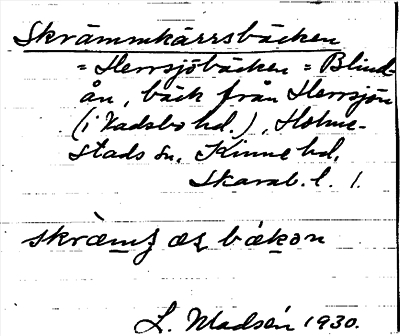 Skrämmkärrsbäcken
= Herrsjöbäcken = Blind-
ån, bäck från Herrsjön
(i Vadsbo hd.), Holme-
stads sn. Kinne hd.
Skarab. l. 1.
bákən
L. Madsén 1930.